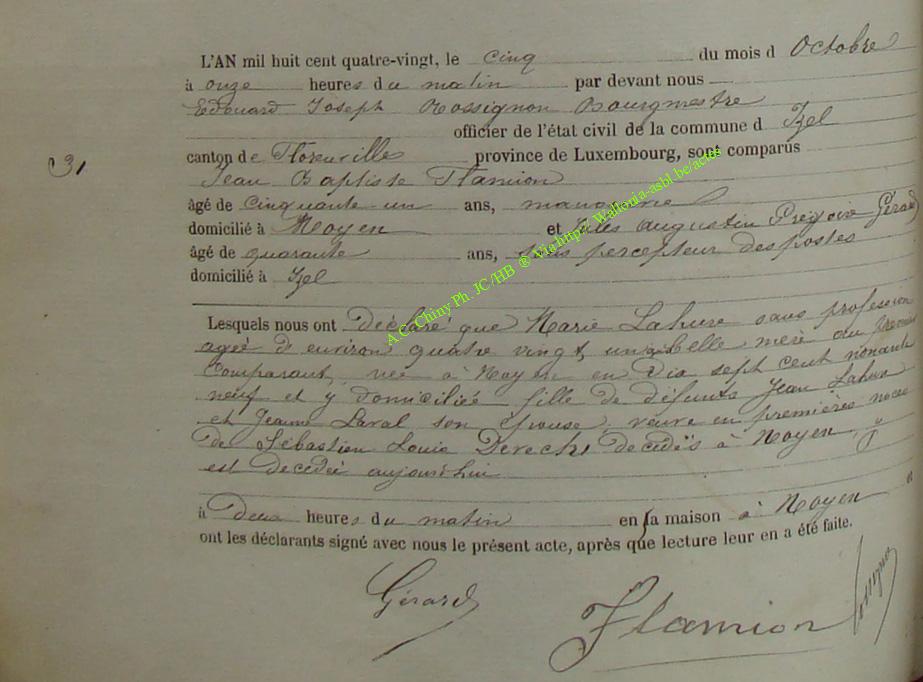 L'AN mil huit cent quatre-vingt, le cinq du mois d Octobre
à onze heures du matin par devant nous
Edouard Joseph Rossignon Bourgmestre
officier de l'état civil de la commune d Izel
31
canton de Florenville province de Luxembourg, sont comparus
Jean Baptiste Flamion
âgé de cinquante un ans, manœuvre
domicilié à Moyen et Jules Augustin Grégoire Gérard
âgé de quarante ans, sous percepteur des postes
domicilié à Izel
Lesquels nous ont déclaré que Marie Lahure sans profession
agée d environ quatre vingt un belle mère au premier
comparant, née à Moyen en dix sept cent nonante
neuf et y domiciliée fille de défunts Jean Lahure
et Jeanne Laval son épouse, veuve en premières noces
de Sébastien Louis decédés à Moyen, y
est decédée aujourdhui
à deux heures du matin en la maison à Moyen
ont les déclarants signé avec nous le présent acte, après que lecture leur en a été faite.
Gérard
Flamion
Rossignon
A.G.Chiny Ph. JC/HB ® Via http:// Wallonia-asbl.be/actes